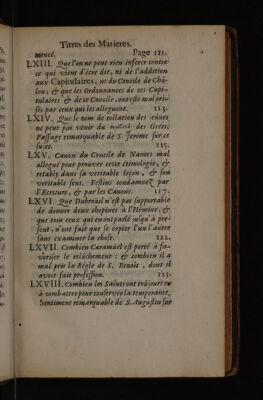 Titres des Matieres.
mencé. Page 121.
LXIII. Que l'on ne peut rien inferer contre
ce qui vient d'être dit, ni de l'addition
aux Capitulaires, ni du Concile de Châ-
lon; & que les Ordonnances de ces Capi-
tulaires & de ce Concile, ont esté mal pri-
ses par ceux qui les alleguent. 113.
LXIV. Que le nom de collation des cenes
ne peut pas venir du des Grecs;
Passage remarquable de S. Jerôme sur ce
sujet. 115.
LXV. Canon du Concile de Nantes mal
allegué pour prouver cette étimologie, &
rétabli dans sa veritable leçon, & son
veritable sens. Festins condamnez par
l'Ecriture, & par les Canons. 117.
LXVI. Que Dubreüil n'est pas supportable
de donner deux chopines à l'Hemine, &
que tous ceux qui en ont parlé jusqu'à pre-
sent, n'ont fait que se copier l'un l'autre
sans examiner la chose. 122.
LXVII. Combien Caramüel est porté à fa-
voriser le relâchement: & combien il a
mal pris la Régle de S. Benoît, dont il
avoit fait profession. 123.
LXVIII. Combien les Saints ont toûjours eu
à combattre pour conserver la temperance.
Sentiment remarquable de S. Augustin sur